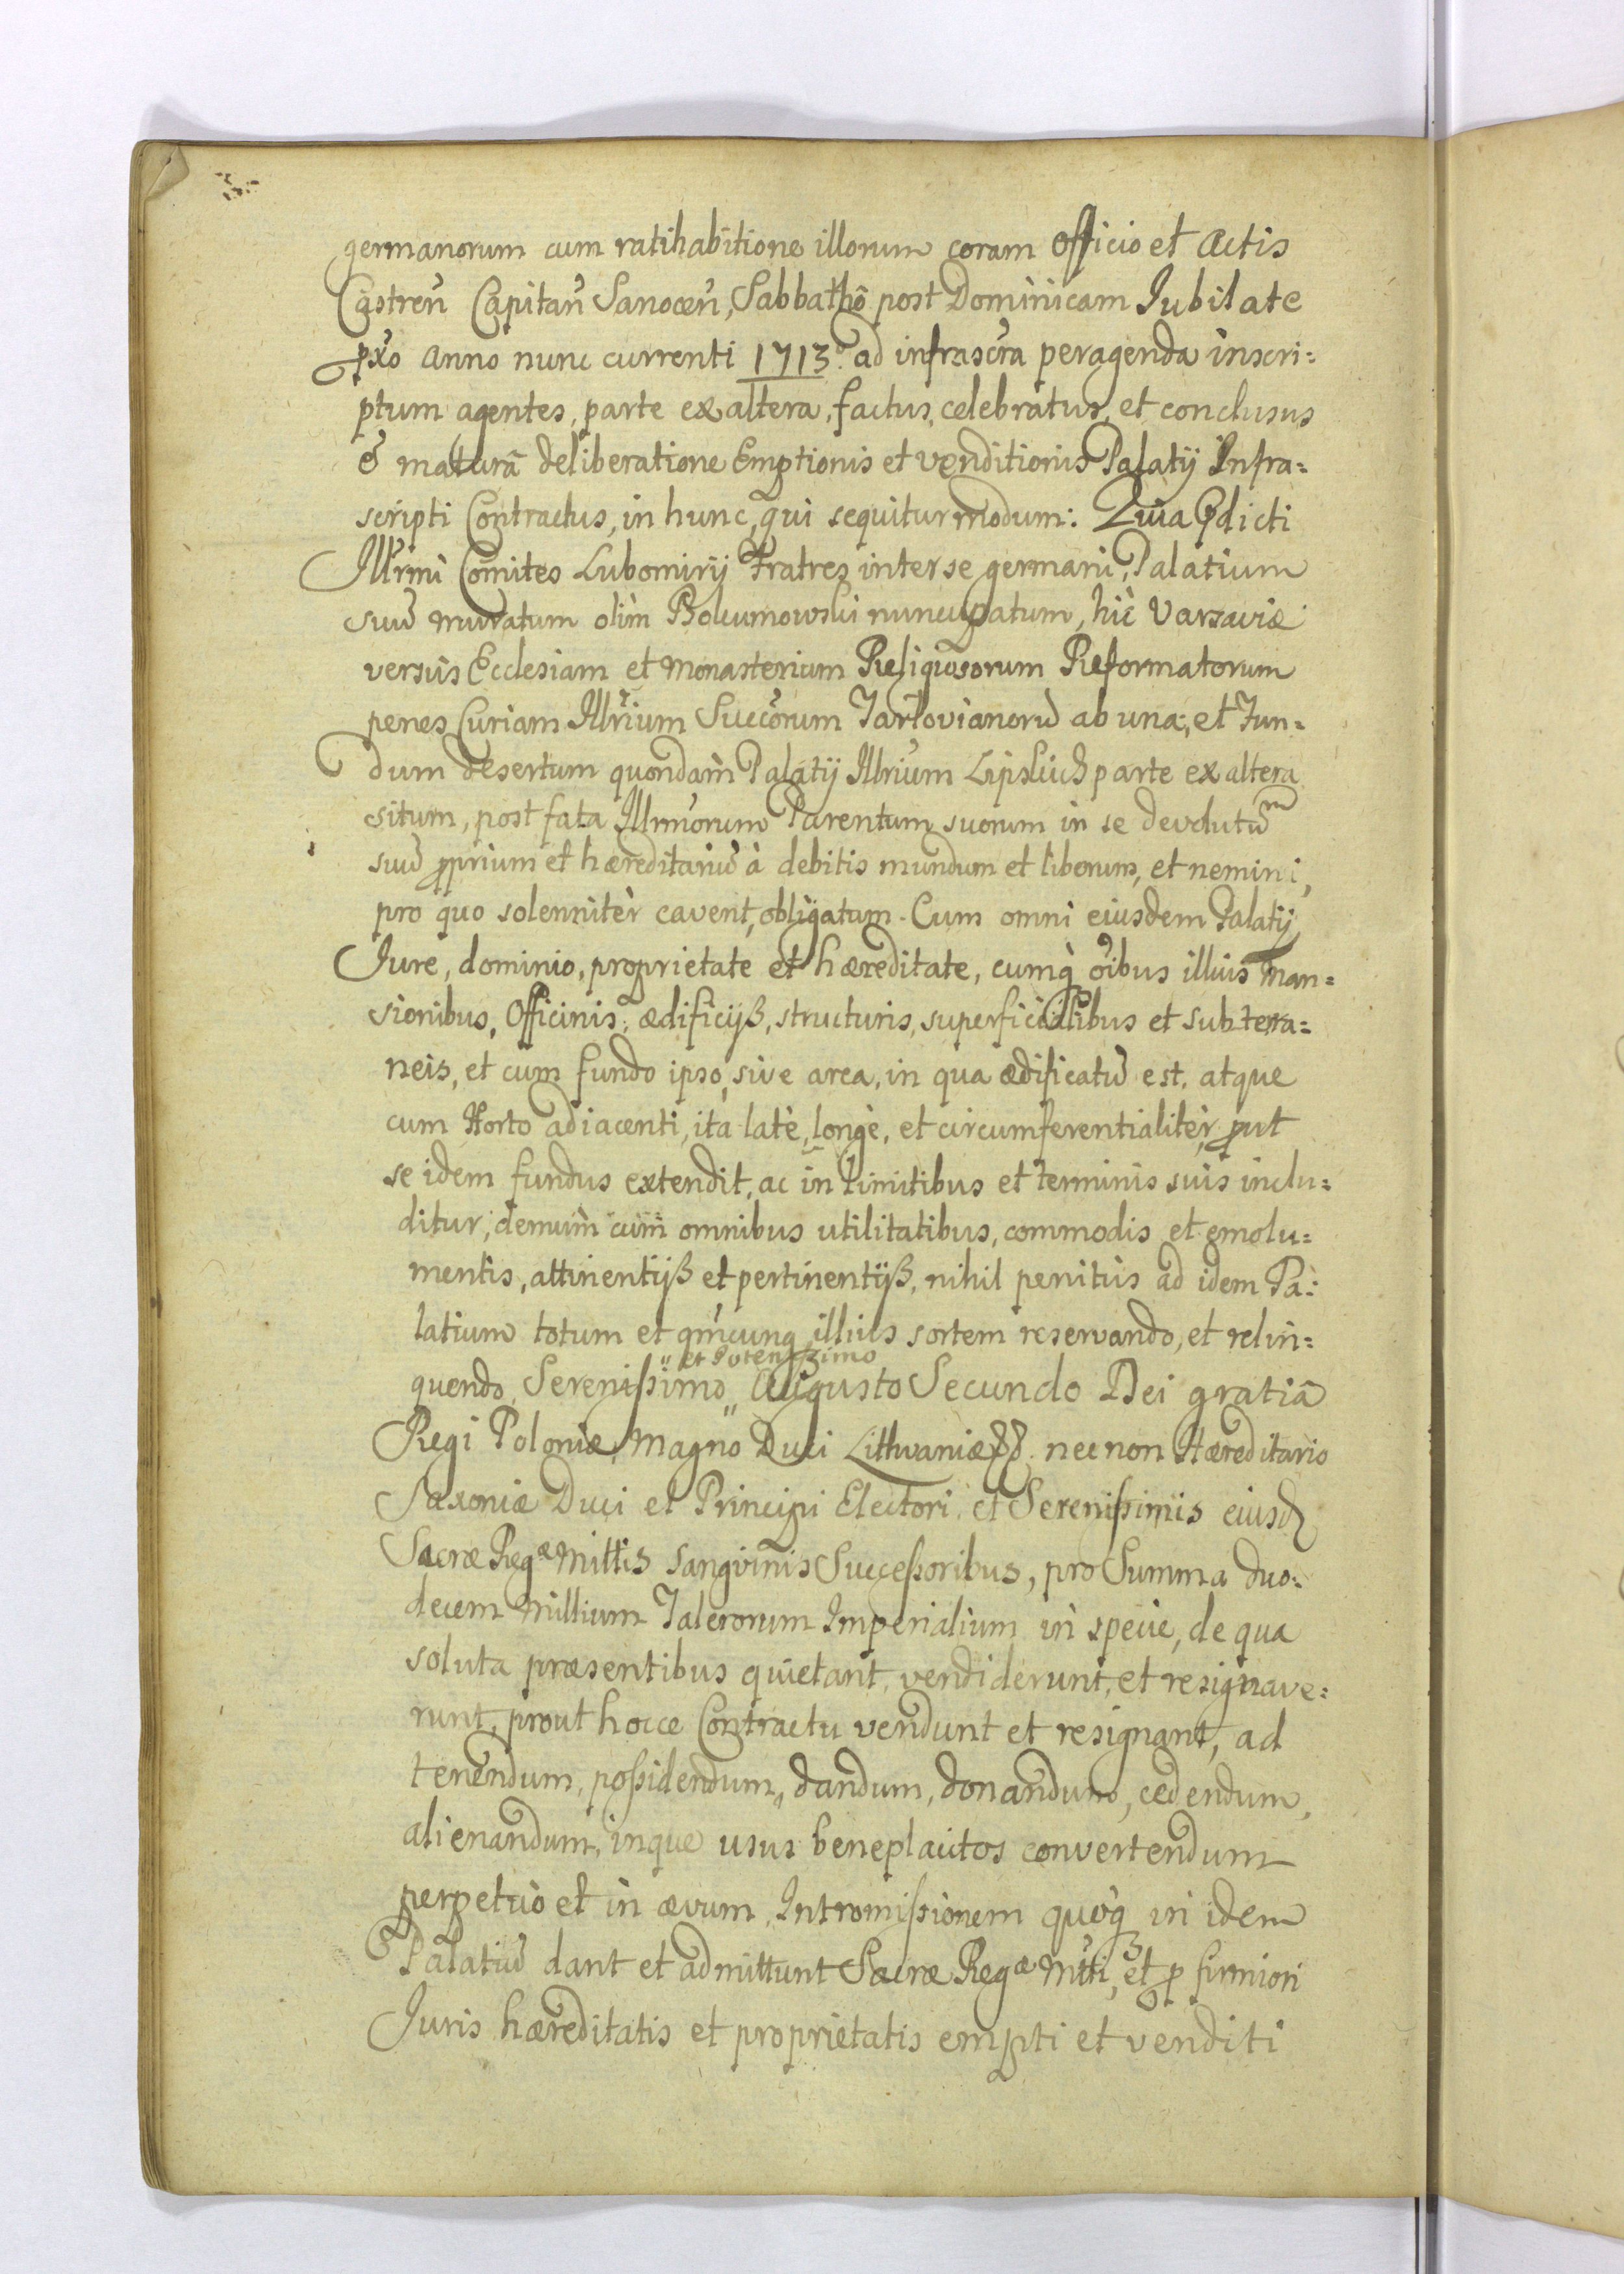 germanorum cum ratihabitione illorum coram Officio et Actis
Castreñ Capitañ Sanoceñ, Sabbathô post Dominicam Jubilate
pxo Anno nunc currenti 1713. ad infrascra peragenda inscri=
ptum agentes, parte ex altera, factus, celebratus, et conclusus
e maturâ deliberatione Emptionis et venditionis Palatij Infra=
scripti Contractus, in hunc, qui sequitur modum: Quia pdicti
Illrmi Comites Lubomirÿ Fratres inter se germani, Palatium
suũ muratum olim Bokumowski nuncupatum, hic Varsaviæ
versus Ecclesiam et Monasterium Religiosorum Reformatorum
penes Curiam Illrium Succorum Tarlovianorũ ab una, et Fun=
dum desertum quondam Palatÿ Illrium Lipskich parte ex altera
situm, post fata Illmorum Parentum suorum in se devolutũ
suũ pprium et hæreditariũ à debitis mundum et liberum, et nemini,
pro quo solenniter cavent, obligatum. Cum omni eiusdem Palatÿ
Jure, dominio, proprietate et hæreditate, cumq̀ oibus illius Man=
sionibus, Officinis, ædificijß, structuris, superficialibus et subterra=
neis, et cum fundo ipso, sive area, in qua ædificatũ est, atque
cum Horto adiacenti, ita latè, longè, et circumferentialiter, put
se idem fundus extendit, ac in limitibus et terminis suis inclu=
ditur, demum cum omnibus utilitatibus, commodis et emolu=
mentis, attinentijß et pertinentijß, nihil penitùs ad idem Pa=
latium totum et qmcunq illius sortem reservando, et relin=
" et Potentißimo
quendo, Serenißimo " Augusto Secundo Dei gratiâ
Regi Poloniæ, Magno Duci Lithvaniæ nec non Hæreditario
Saxoniæ Duci et Principi Electori, et Serenißimis eiusd
Sacræ Regæ Mittis Sangvinis Succeßoribus, pro Summa duo=
decem Millium Talerorum Imperialium in specie, de qua
soluta præsentibus quietant, vendiderunt, et resignave=
runt, prout hocce Contractu vendunt et resignant, ad
tenendum, poßidendum, dandum, donandum, cedendum,
alienandum, inque usus beneplacitos convertendum
perpetuò et in ævum, Intromißionem quoq̀ in idem
Palatiũ dant et admittunt Sacræ Regæ Mtti, et p firmiori
Juris hæreditatis et proprietatis empti et venditi